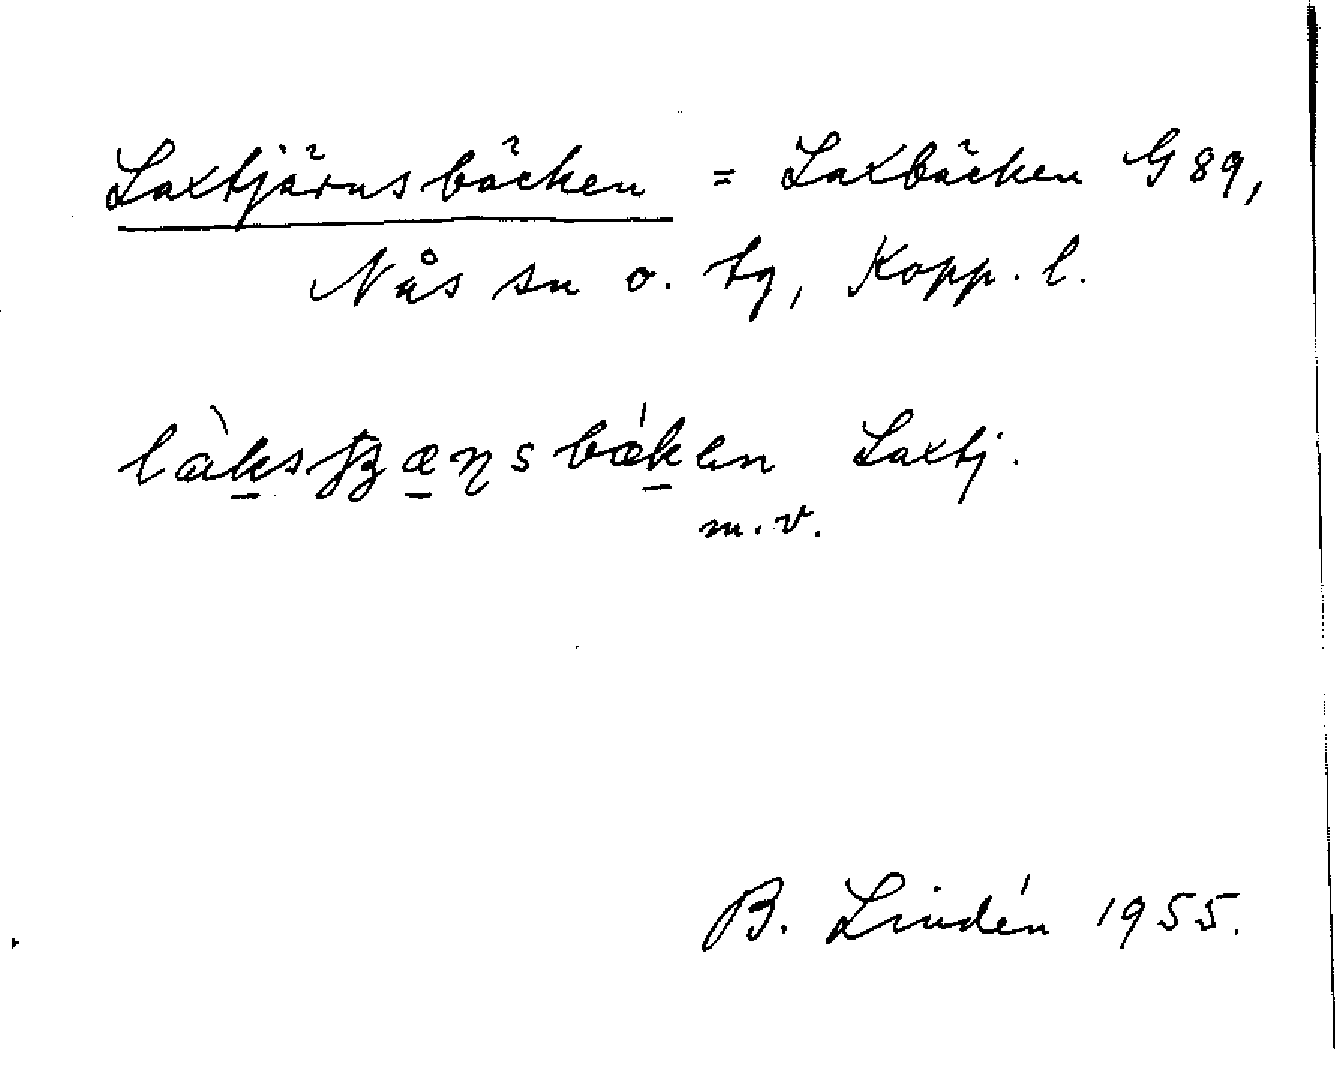 Laxtjärnsbäcken = Laxbäcken G 89,
Nås sn o. tg, Kopp. l.
Laxtj.
m.v.
B. Lindén 1955.